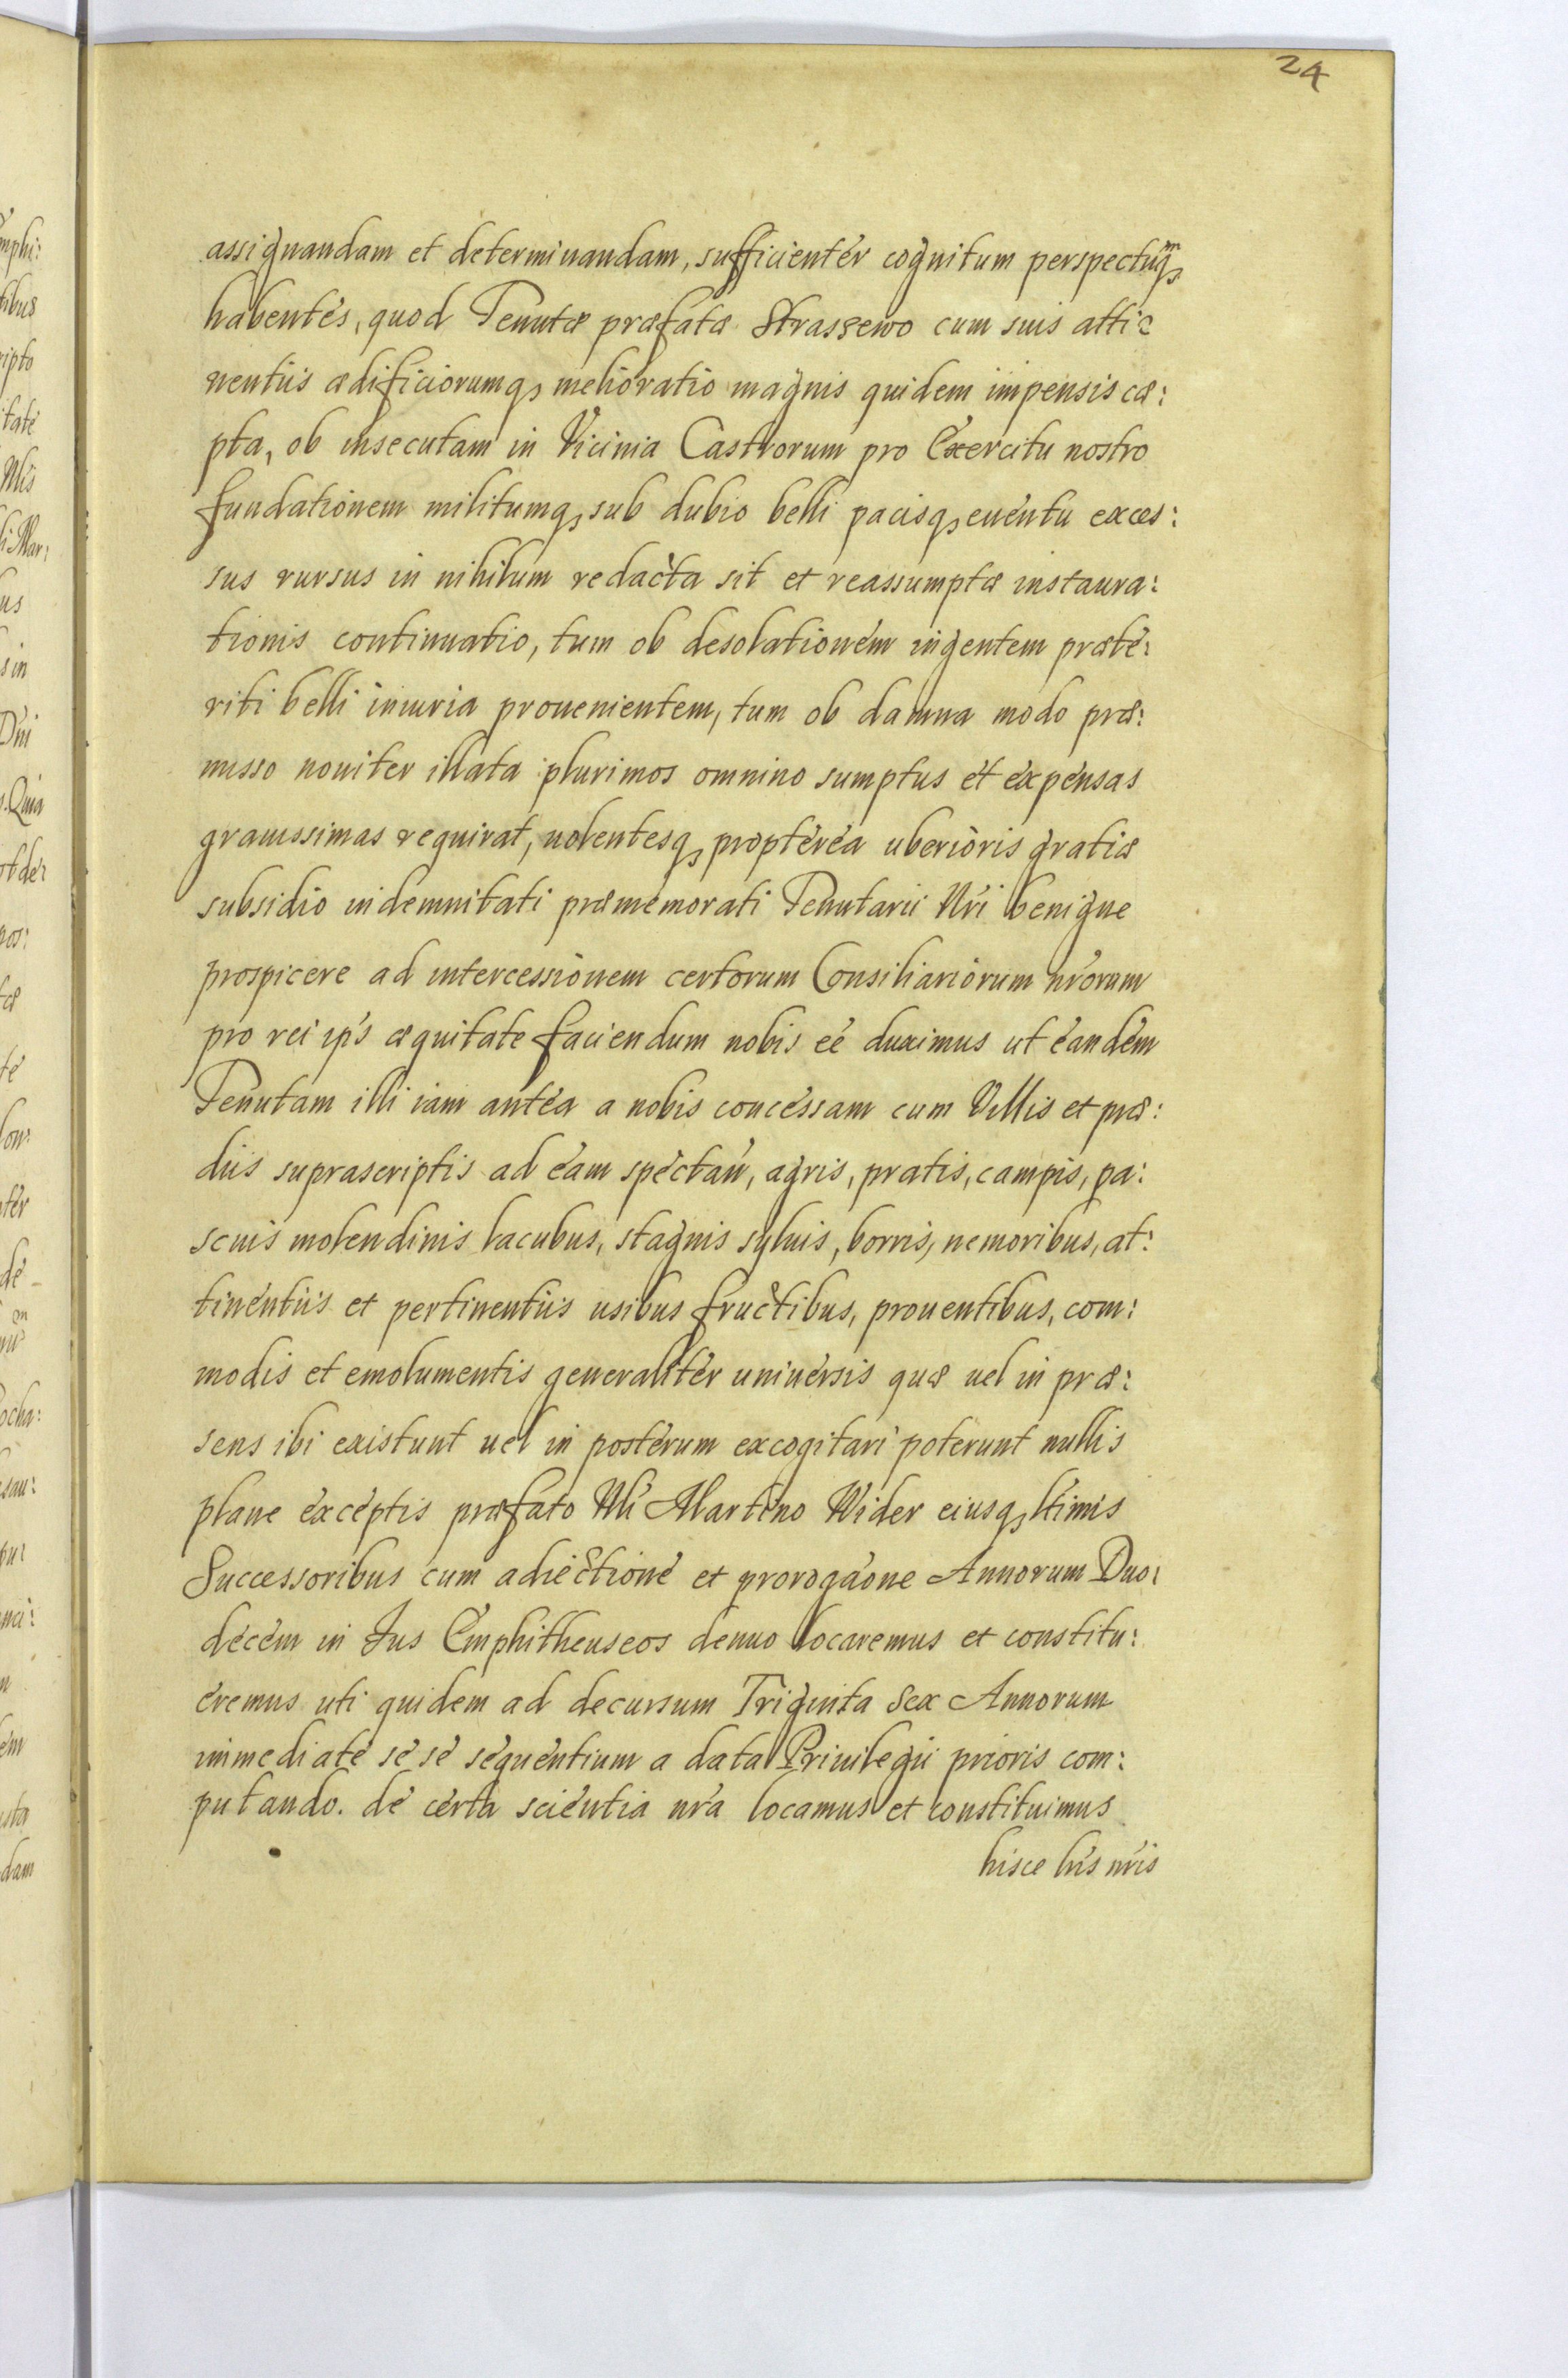 24
assignandam et determinandam, sufficientér cognitum perspectumq,
habentés, quod Tenutæ præfatæ Strassewo cum suis atti:
nentiis ædificiorumq, melioratio magnis quidem impensis cæ:
pta, ob insecutam in Vicinia Castrorum pro Exercitu nostro
fundationem militumq, sub dubio belli pacisq, euentu exces:
sus rursus in nihilum redacta sit et reassumptæ instaura:
tionis continuatio, tum ob desolationém ingentem præté:
riti belli iniuria prouenientem, tum ob damna modo præ:
misso nouiter illata plurimos omnino sumptus ét expénsas
grauissimas requirat, uolentesq, proptéréa uberioris gratiæ
subsidio indemnitati præmemorati Tenutarii Nri benigne
prospicere ad intercessionem certorum Consiliariorum nrorum
pro rei ips æquitate faciendum nobis eé duximus ut éandém
Tenutam illi iam antéa a nobis concéssam cum Villis et præ:
diis suprascriptis ad éam spéctan, agris, pratis, campis, pa:
scuis molendinis lacubus, stagnis syluis, borris, nemoribus, at:
tinéntiis et pertinentiis usibus fructibus, prouentibus, com:
modis et emolumentis generalitér uniuérsis quæ uel in præ:
sens ibi existunt uel in postérum excogitari poterunt nullis
plane éxcéptis præfato Nli Martino Wider eiusq, ltimis
Successoribus cum adiectioné et prorogaone Annorum Duo:
décém in Jus Emphitheuseos denuo locaremus et constitu:
éremus uti quidem ad decursum Triginta Sex Annorum
immediaté sé sé séquéntium a data Priuilegii prioris com:
putando. dé cérta sciéntia nra locamus et constituimus
hisce lris nris